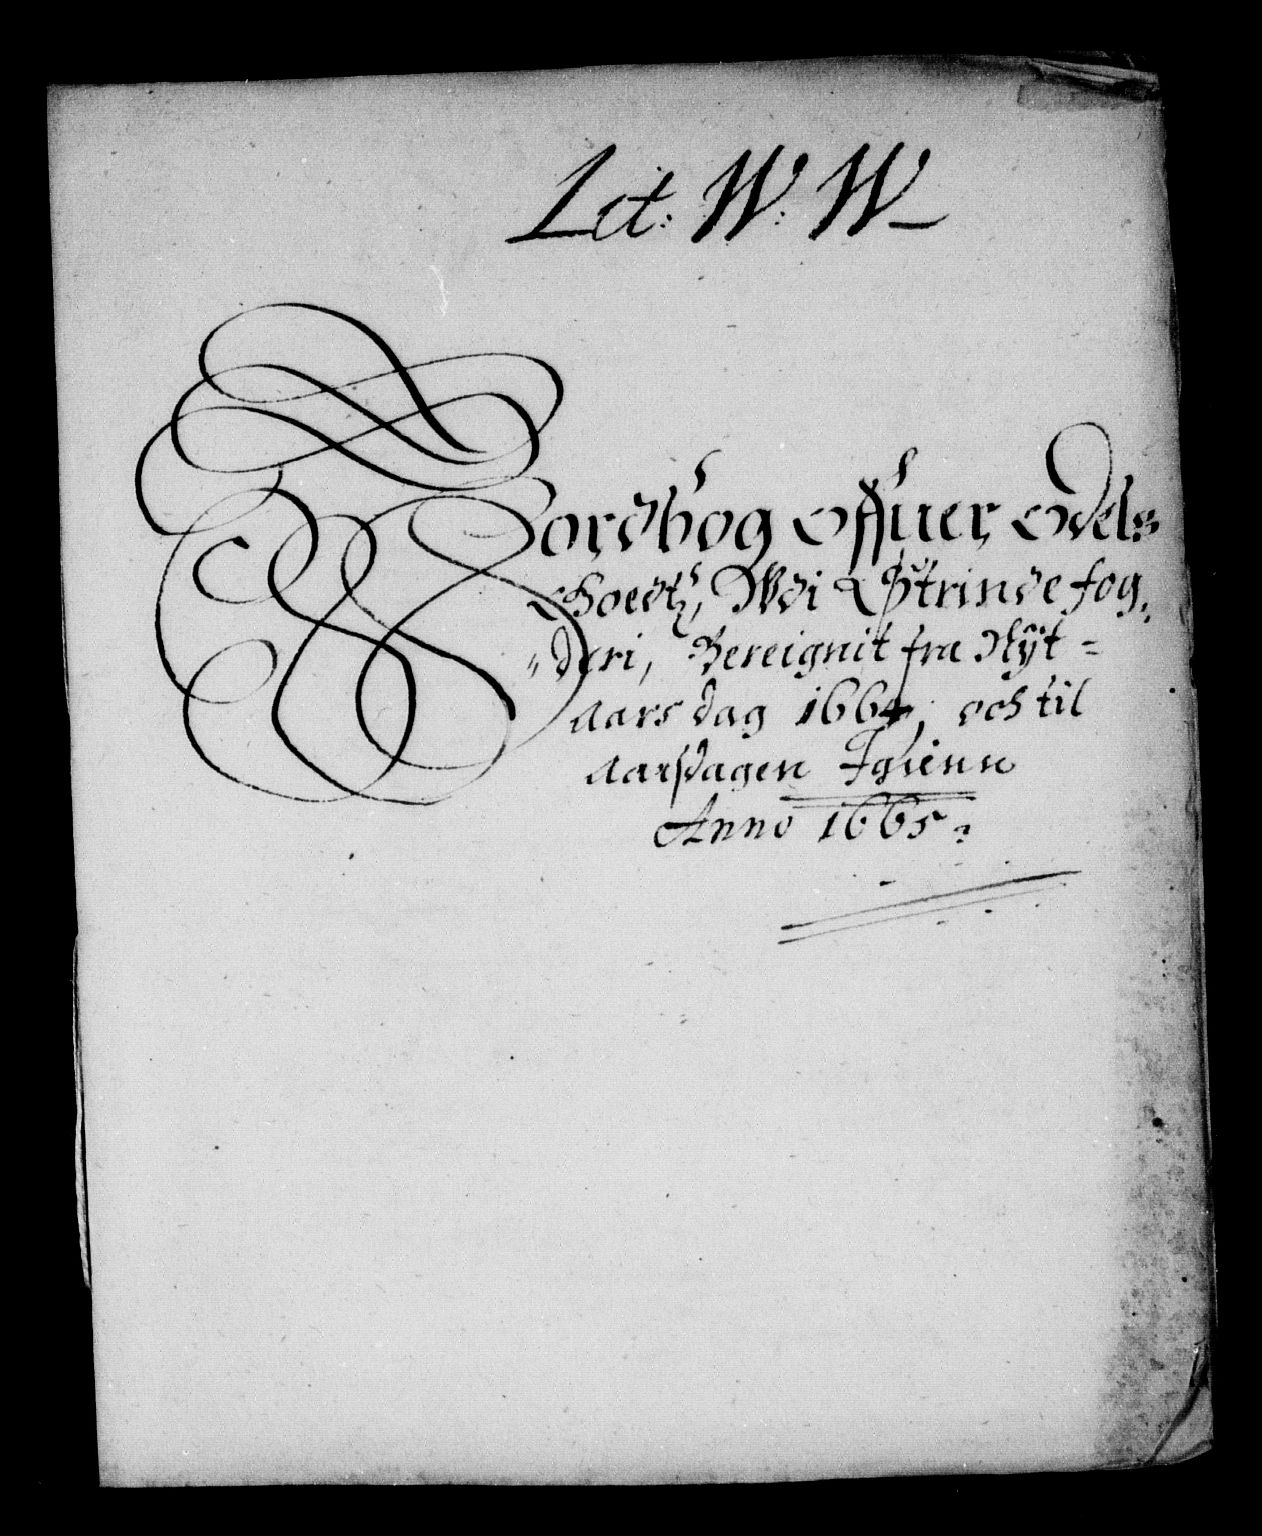 Lit: W: W
Jordbog offuer Odels
Goedtz, Udi Strinde fog,
„deri, Bereignit fra Nyt=
aars dag 1664, och til
aarsdagen Igienn
Anno 1665.